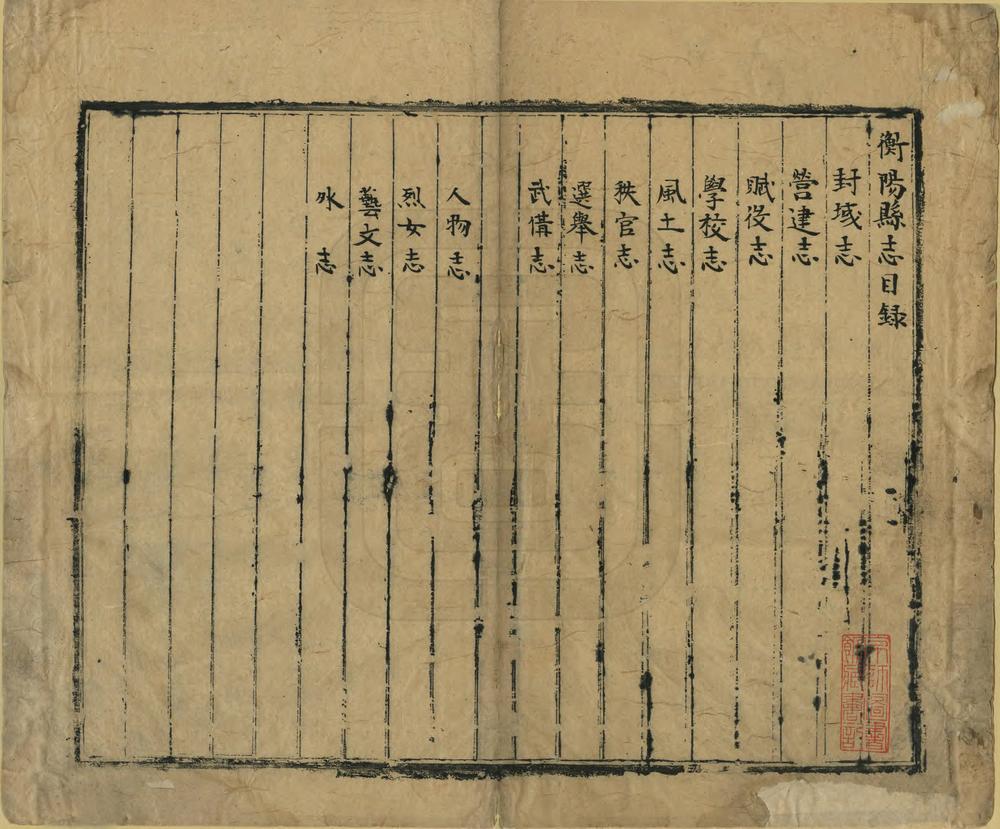 衡陽縣志目録
封域志
營建志
賦役志
學校志
風土志
秩官志
選舉志
武備志
人物志
烈女志
藝文志
外志
京師圖書館收藏之印